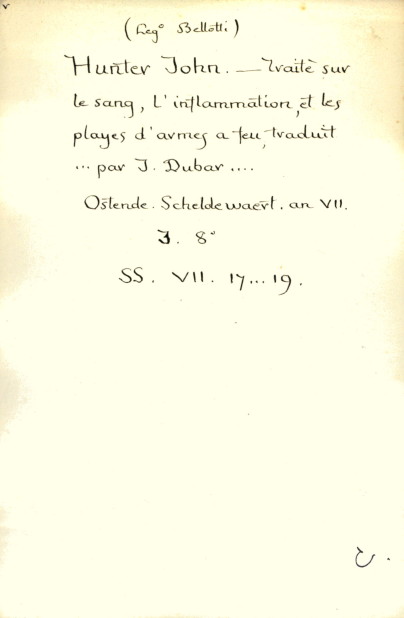 (Leg° Bellotti)
Hunter John. — Traité sur
le sang, L'inflammation, et les
playes d'armes a feu, traduit
... par J. Dubar ....
Ostende. Scheldewaert. an VII.
3. 8°
SS. VII. 17...19.